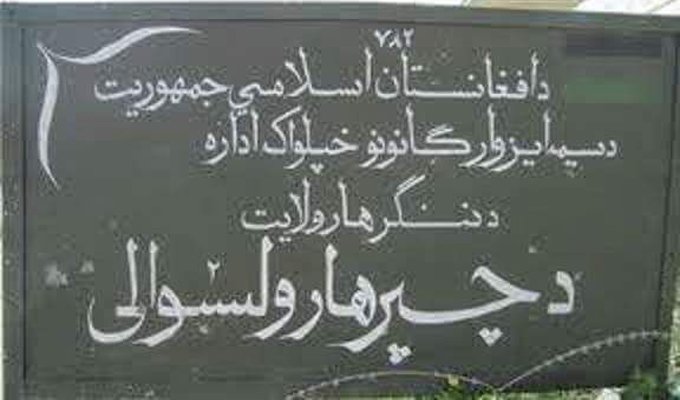 ۷۸۲
د أفغانستان اسلامي جمهوریت
د سیمه ایزو ارگانونو خپلواک اداره
د ننگرهار ولایت
د چپرهار ولسوالی